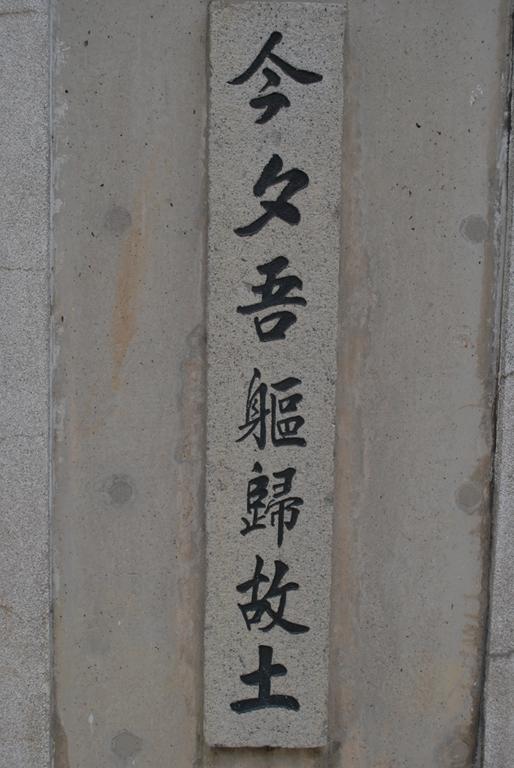 今夕吾軀歸故土